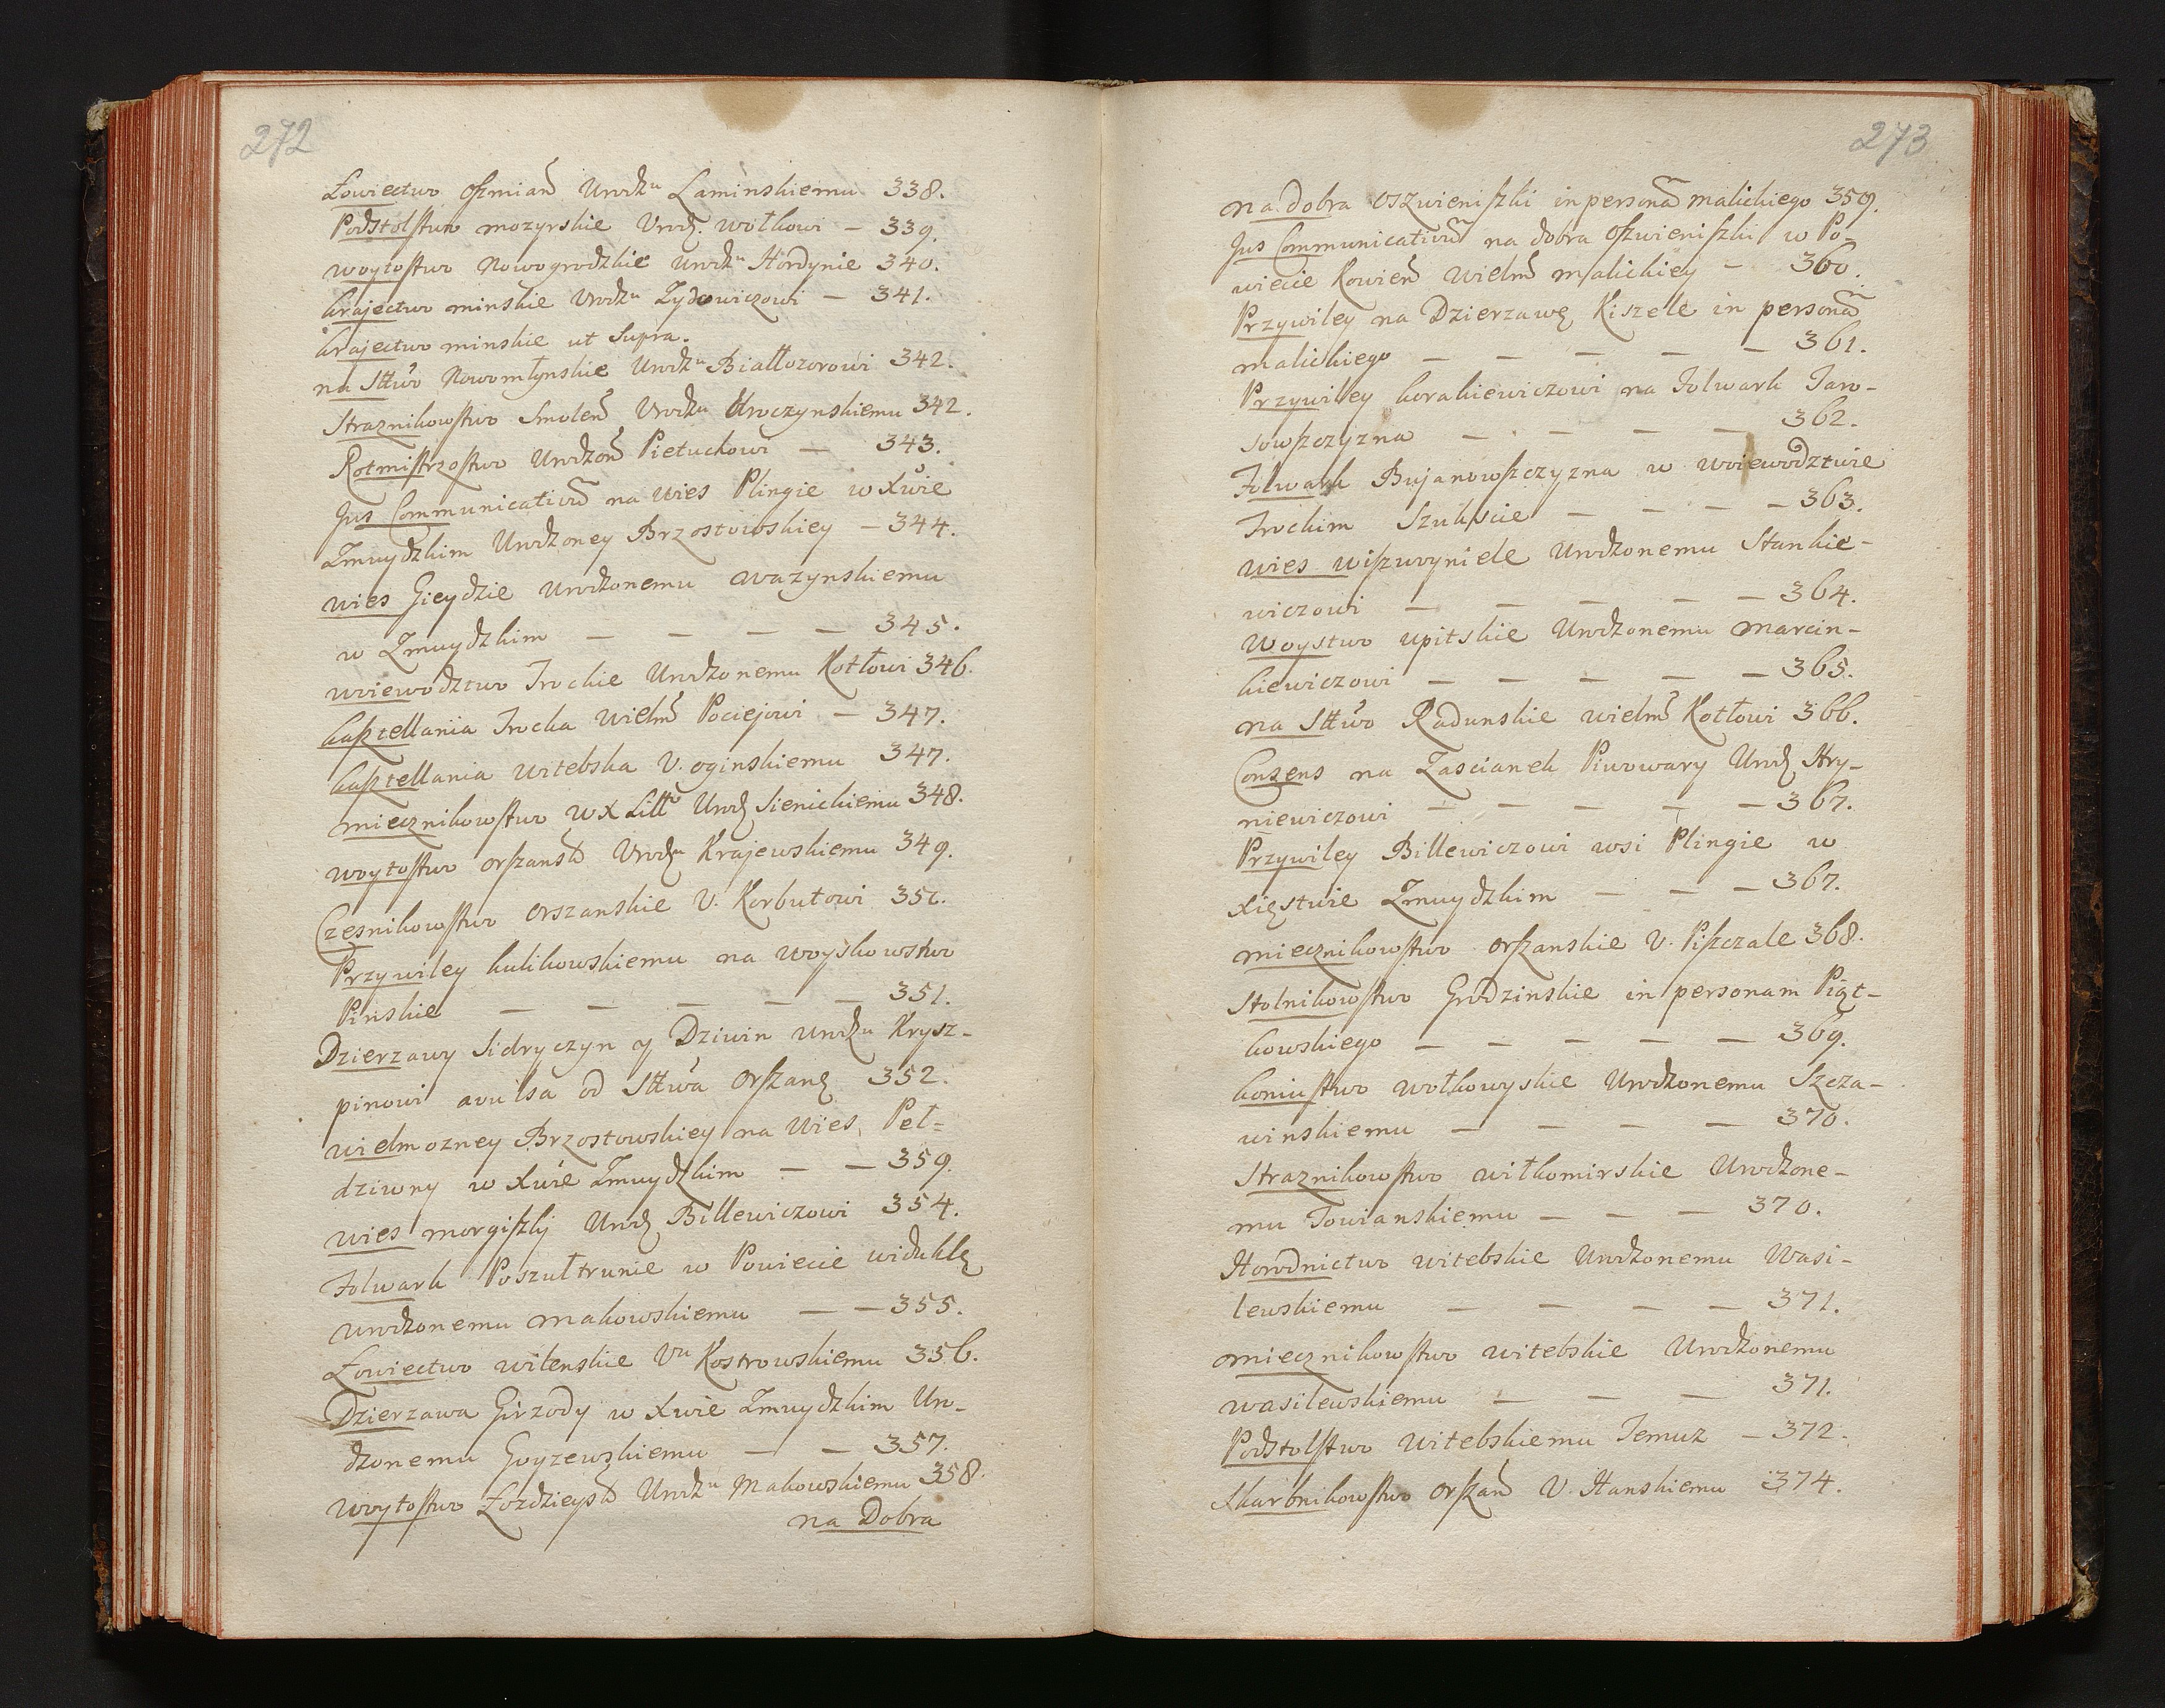 272
Łowiectwo Oszmian̄ Urodz͞u Laminskiemu 338.
Podstolstwo mozyrskie Urodz. wołkowi — 339.
woytostwo Nowogrodzkie Urodz͞u Hordynie 340.
krajectwo minskie Urodz͞u Zydowiczowi — 341.
krajectwo minskie ut Supra.
na Sttwo Nowomłynskie Urodz͞u Białłozorowi 342.
Straznikowstwo Smolen̄ Urodz͞u Uroczynskiemu 342.
Rotmistrzostwo Urodzon̄ Pietuchowi — 343.
Jus Communicativum̄ na wies Plingie w Xwie
Zmuydzkim Urodzoney Brzostowskiey — 344.
wies Gieydzie Urodzonemu wazynskiemu
w Zmuydzkim — — — — 345.
woiewodztwo Trockie Urodzonemu Kotłowi 346.
kasztellania Trocka wielm̄ Pociejowi — 347.
kasztellania witebska U. oginskiemu 347.
miecznikowstwo W X Litt͞o Urodz Sienickiemu 348.
woytostwo orszansk̄ Urodz͞u Krajewskiemu 349.
Czesnikowstwo orszanskie U. Korbutowi 351.
Przywiley kulikowskiemu na woyskowstwo
Pinskie — — — — — 351.
Dzierzawy Sidryczyn y Dziwin Urodz͞u Krysz-
pinowi avulsa od Sttwa Orszanȩ 352.
wielmozney Brzostowskiey na wies Peł=
dziwny w Xwie Zmuydzkim — — 359.
wies morgiszki Urodz Billewiczowi 354.
Folwark Poszułtrunie w Powiecie widuklę
Urodzonemu makowskiemu — — 355.
Łowiectwo wilenskie U͞u Kostrowskiemu 356.
Dzierzawa Girzody w Xwie Zmuydzkim Uro-
dzonemu Goyzewskiemu — — 357.
woytostwo Łozdzieysk̄ Urodz͞u Makowskiemu 358.
na Dobra
273
na dobra oszwieniszki in personam̄ malickiego 359.
Jus Communicativum̄ na dobra Oszwieniszki w Po-
wiecie Kowien̄ wielm̄ malickiey — 360.
Przywiley na Dzierzawę Kiszele in personam̄
malickiego — — — — — 361.
Przywiley korakiewiczowi na Folwark Jaro-
sowszczyzna — — — — 362.
Folwark Bujanowszczyzna w woiewodztwie
Trockim Szukscie — — — — 363.
wies wiszwyniele Urodzonemu Stankie-
wiczowi — — — — — 364.
Woystwo upitskie Urodzonemu marcin-
kiewiczowi — — — — — 365.
na Sttwo Radunskie wielm̄ Kotłowi 366.
Consens na Zascianek Piwowary Urodz Hry-
niewiczowi — — — — — 367.
Przywiley Billewiczowi wsi Plingie w
xięstwie Zmuydzkim — — — 367.
miecznikowstwo orszanskie U. Piszczale 368.
Stolnikowstwo Grodzinskie in personam Piąt-
kowskiego — — — — — 369.
koniustwo wołkowyskie Urodzonemu Szcza-
winskiemu — — — — 370.
Straznikowstwo wiłkomirskie Urodzone-
mu Towianskiemu — — — 370.
Horodnictwo witebskie Urodzonemu Wasi-
lewskiemu — — — — 371.
miecznikowstwo witebskie Urodzonemu
wasilewskiemu — — — 371.
Podstolstwo witebskiemu Temuz — 372.
Skarbnikowstwo orszan̄ U. Hanskiemu 374.